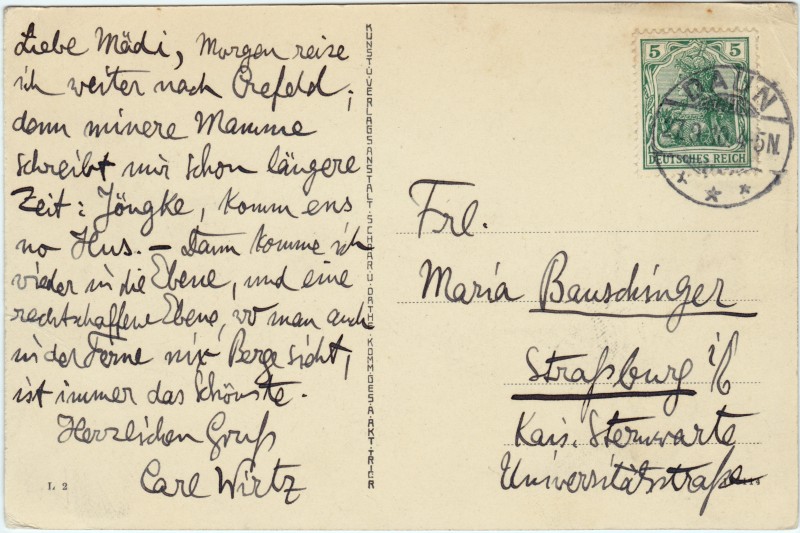 Liebe Mädi, Morgen reise
ich weiter nach Crefeld;
denn minere Mamme
schreibt mir schon längere
Zeit: Jöngke, komm ens
no Hus. – Dann komme ich
wieder in die Ebene, und eine
rechtschaffene Ebene, wo man auch
in der Ferne nix Berge sieht,
ist immer das Schönste.
Herzlichen Gruß
Carl Wirtz
L 2
KUNST U. VERLAGSANSTALT SCHAAR U. DATHE KOMM. GES. A. AKT. TRIER
5 5
DEUTSCHES REICH
DAUN
4-5N.
Frl.
Maria Bauschinger
Straßburg i/E
Kais. Sternwarte
Universitätsstraße